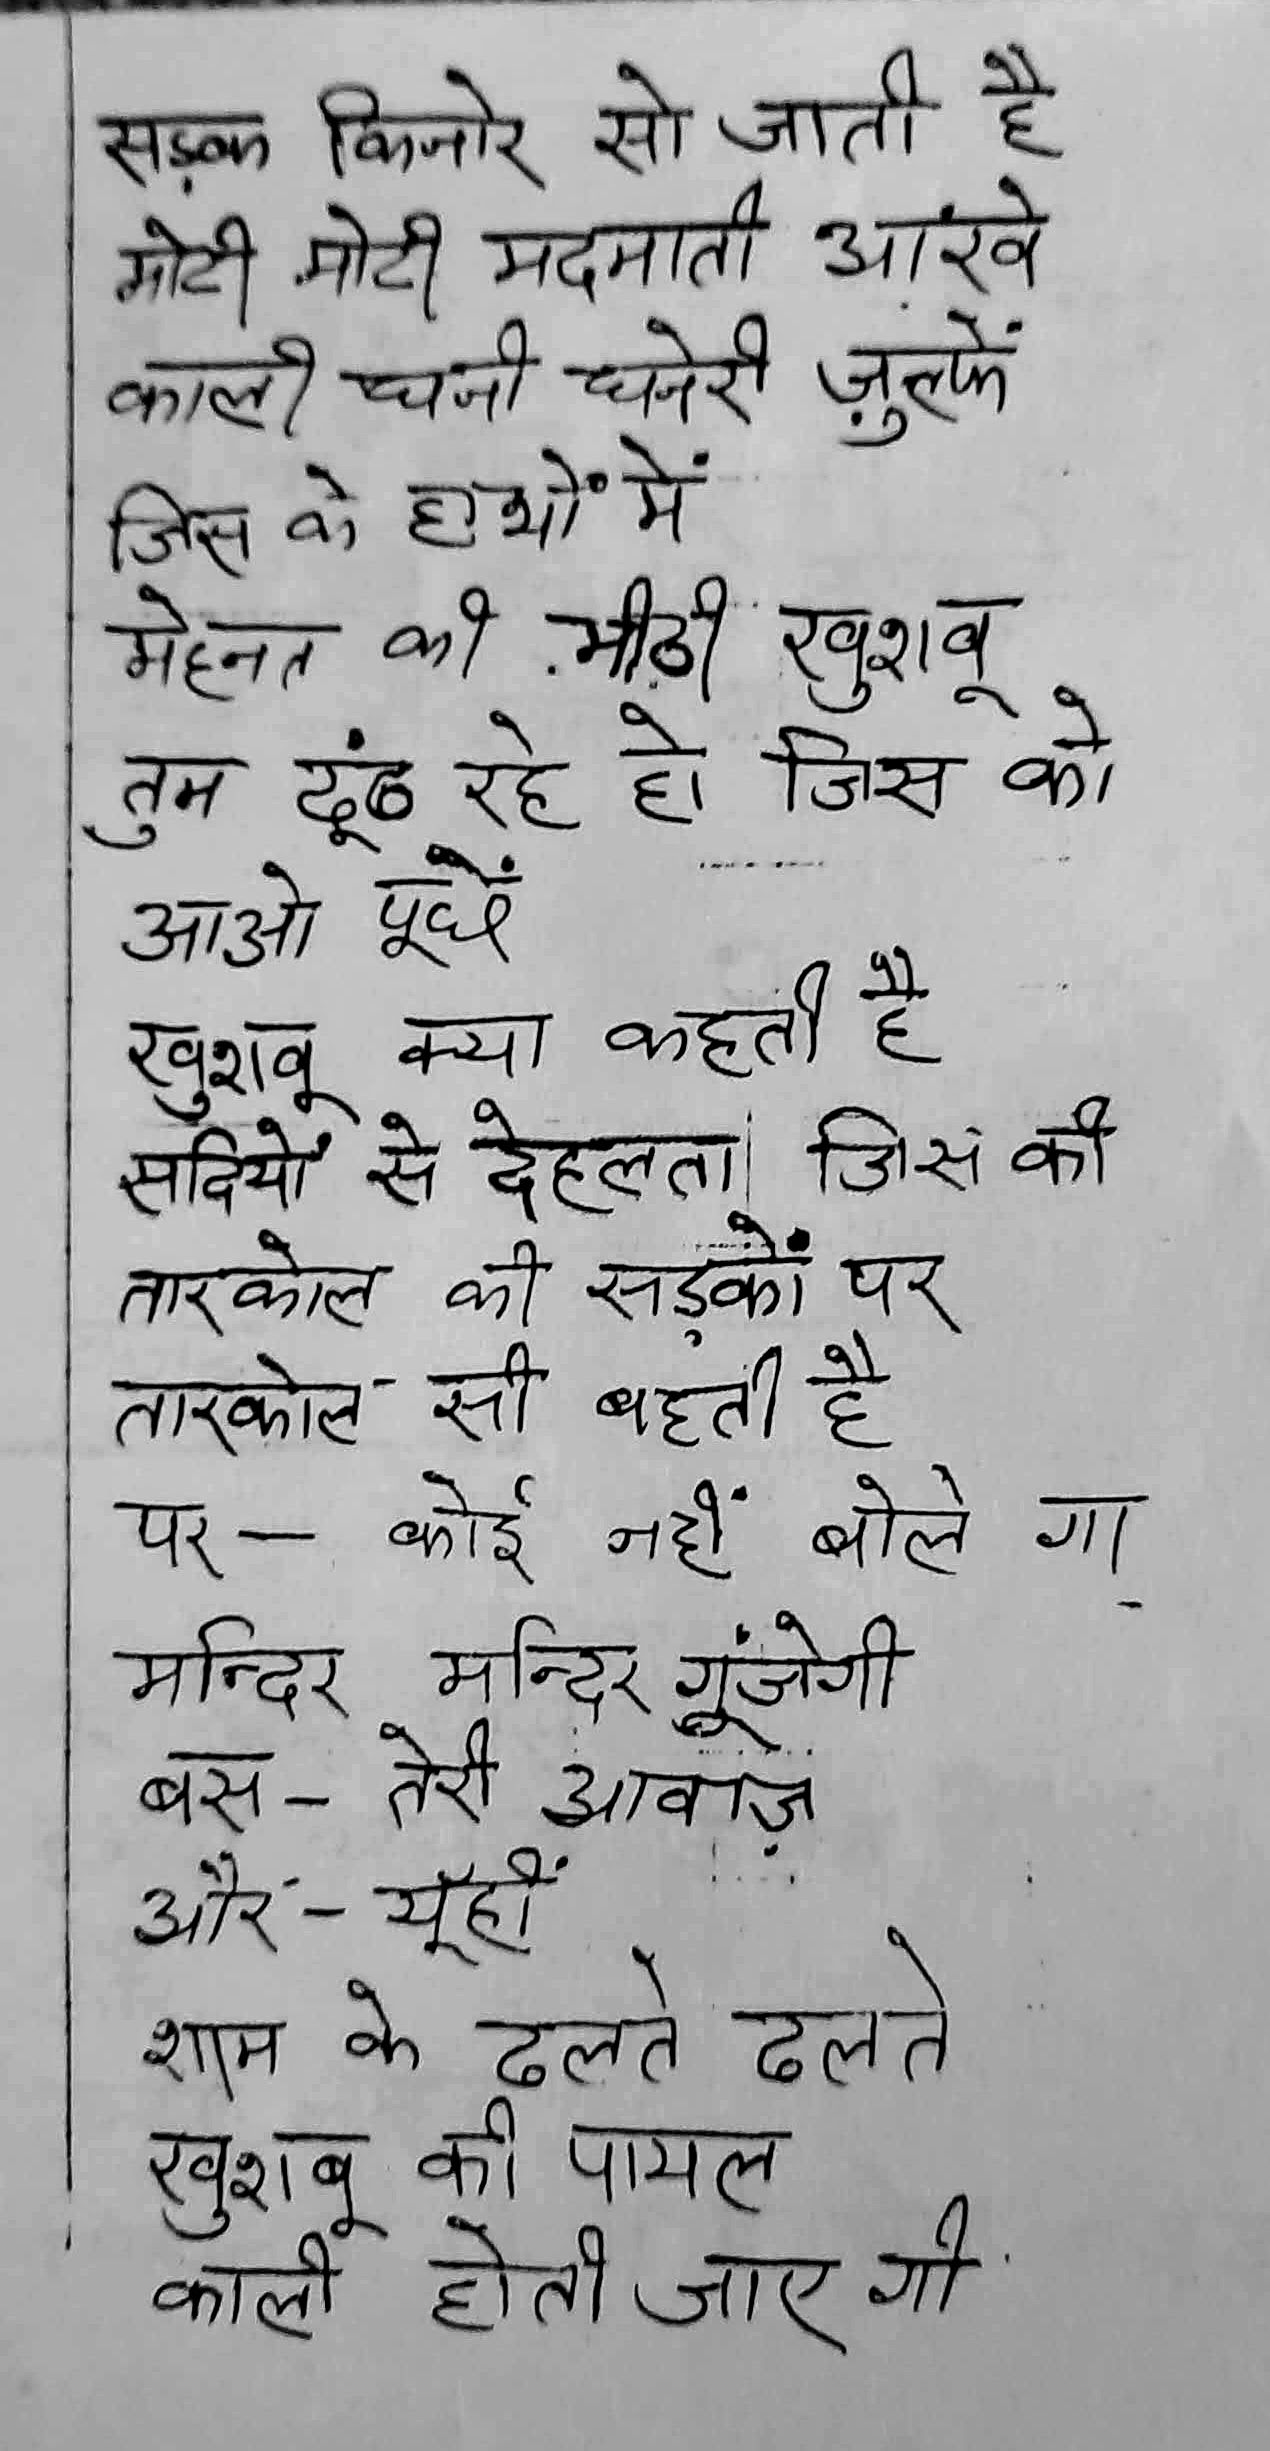 सड़क किनारे सो जाती है
मोटी मोटी मदमाती आंखे
काली घनी घनेरी ज़ुल्फें
जिस के हाथों में
मेहनत की मीठी खुशबू
तुम ढूंढ रहे हो जिस को
आओ पूछें
खुशबू क्या कहती है
सदियों से देहलता जिस की
तारकोल की सड़कों पर
तारकोल सी बहती है
पर – कोई नहीं बोले गा
मन्दिर मन्दिर गूंजेगी
बस – तेरी आवाज़
और – यूंहीं
शाम के ढलते ढलते
खुशबू की पायल
काली होती जाए गी